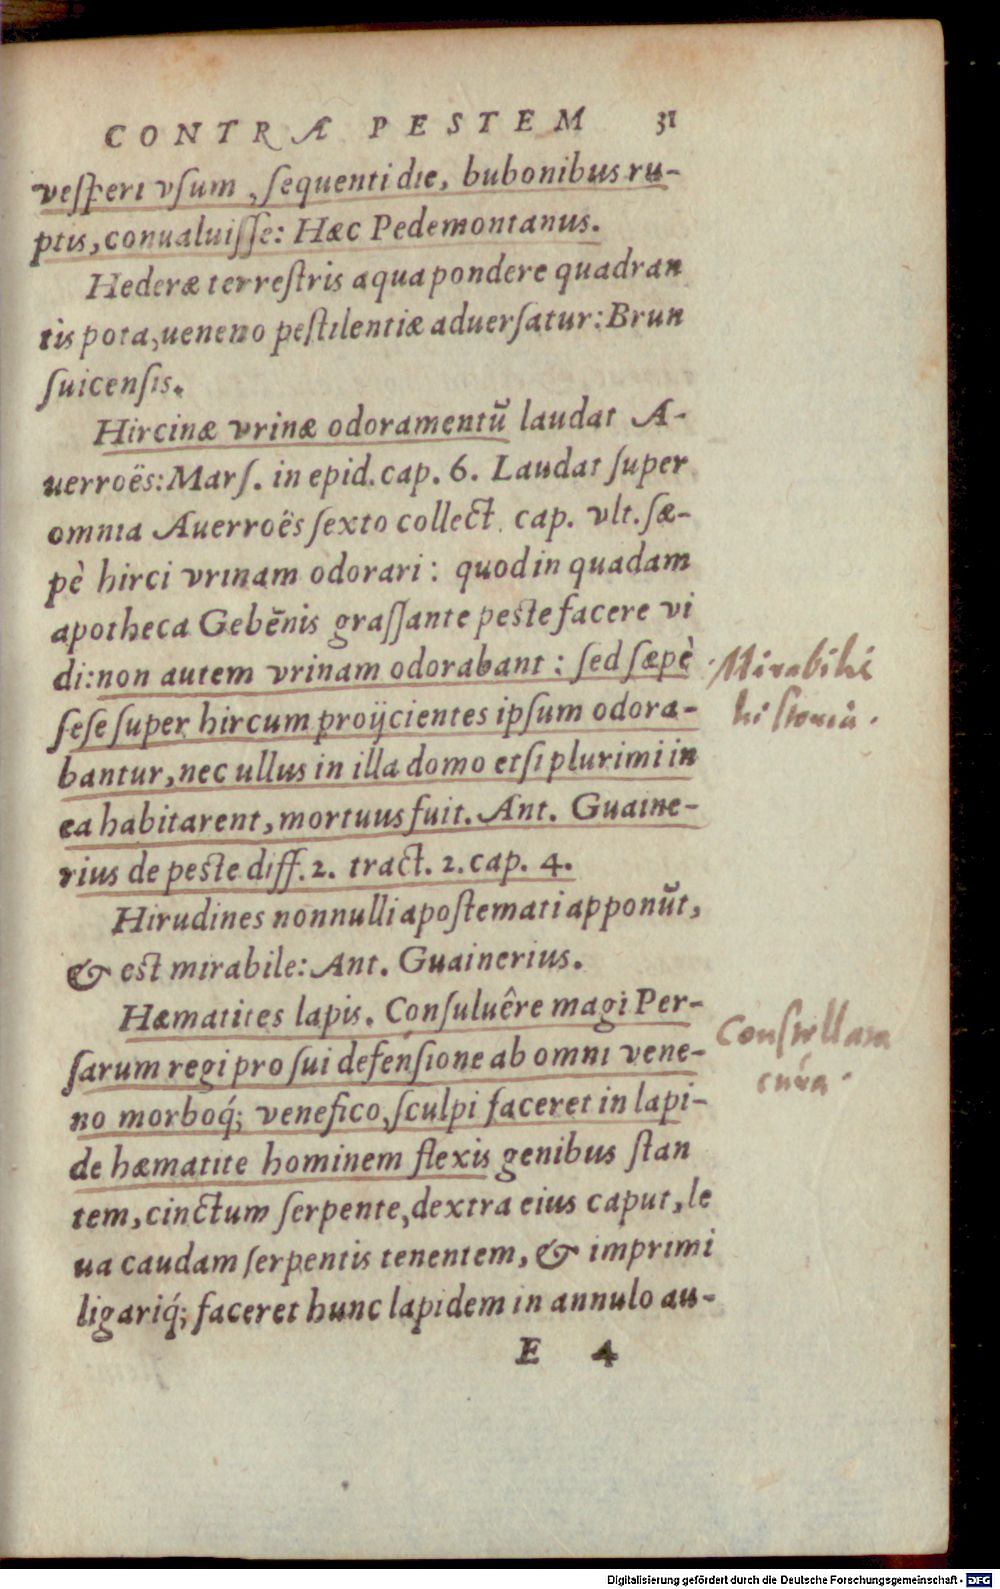 CONTRA PESTEM 31
vesperi vsum, sequenti die, bubonibus ru-
ptis, conualuisse: Hæc Pedemontanus.
Hederæ terrestris aqua pondere quadran
tis pota, ueneno pestilentiæ aduersatur: Brun
suicensis.
Hircinæ vrinæ odoramentū laudat A-
uerroës: Mars. in epid. cap. 6. Laudat super
omnia Auerroës sexto collect. cap. vlt. sæ-
pè hirci vrinam odorari: quod in quadam
apotheca Gebēnis grassante peste facere vi
di: non autem vrinam odorabant: sed sæpè
sese super hircum proijcientes ipsum odora-
bantur, nec ullus in illa domo etsi plurimi in
ea habitarent, mortuus fuit. Ant. Guaine-
rius de peste diff. 2. tract. 2. cap. 4.
Hirudines nonnulli apostemati apponūt,
& est mirabile: Ant. Guainerius.
Hæmatites lapis. Consuluêre magi Per-
sarum regi pro sui defensione ab omni vene-
no morboq́; venefico, sculpi faceret in lapi-
de hæmatite hominem flexis genibus stan
tem, cinctum serpente, dextra eius caput, le
ua caudam serpentis tenentem, & imprimi
ligariq́; faceret hunc lapidem in annulo au-
E 4
Mirabilis
historia.
cura.
Digitalisierung gefördert durch die Deutsche Forschungsgemeinschaft - DFG